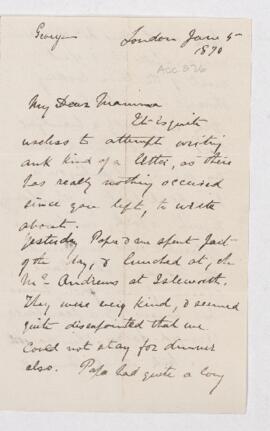 George
London June 5
1890
Acc 826
My Dear Mamma
It is quite
useless to attempt writing
any kind of a letter, as there
has really nothing occured
since you left, to write
about.
Yesterday Papa & me spent part
of the day, & lunched at, the
Mc Andrews at Isleworth.
They were very kind, & seemed
quite disapointed that we
could not stay for dinner
also. Papa had quite a long